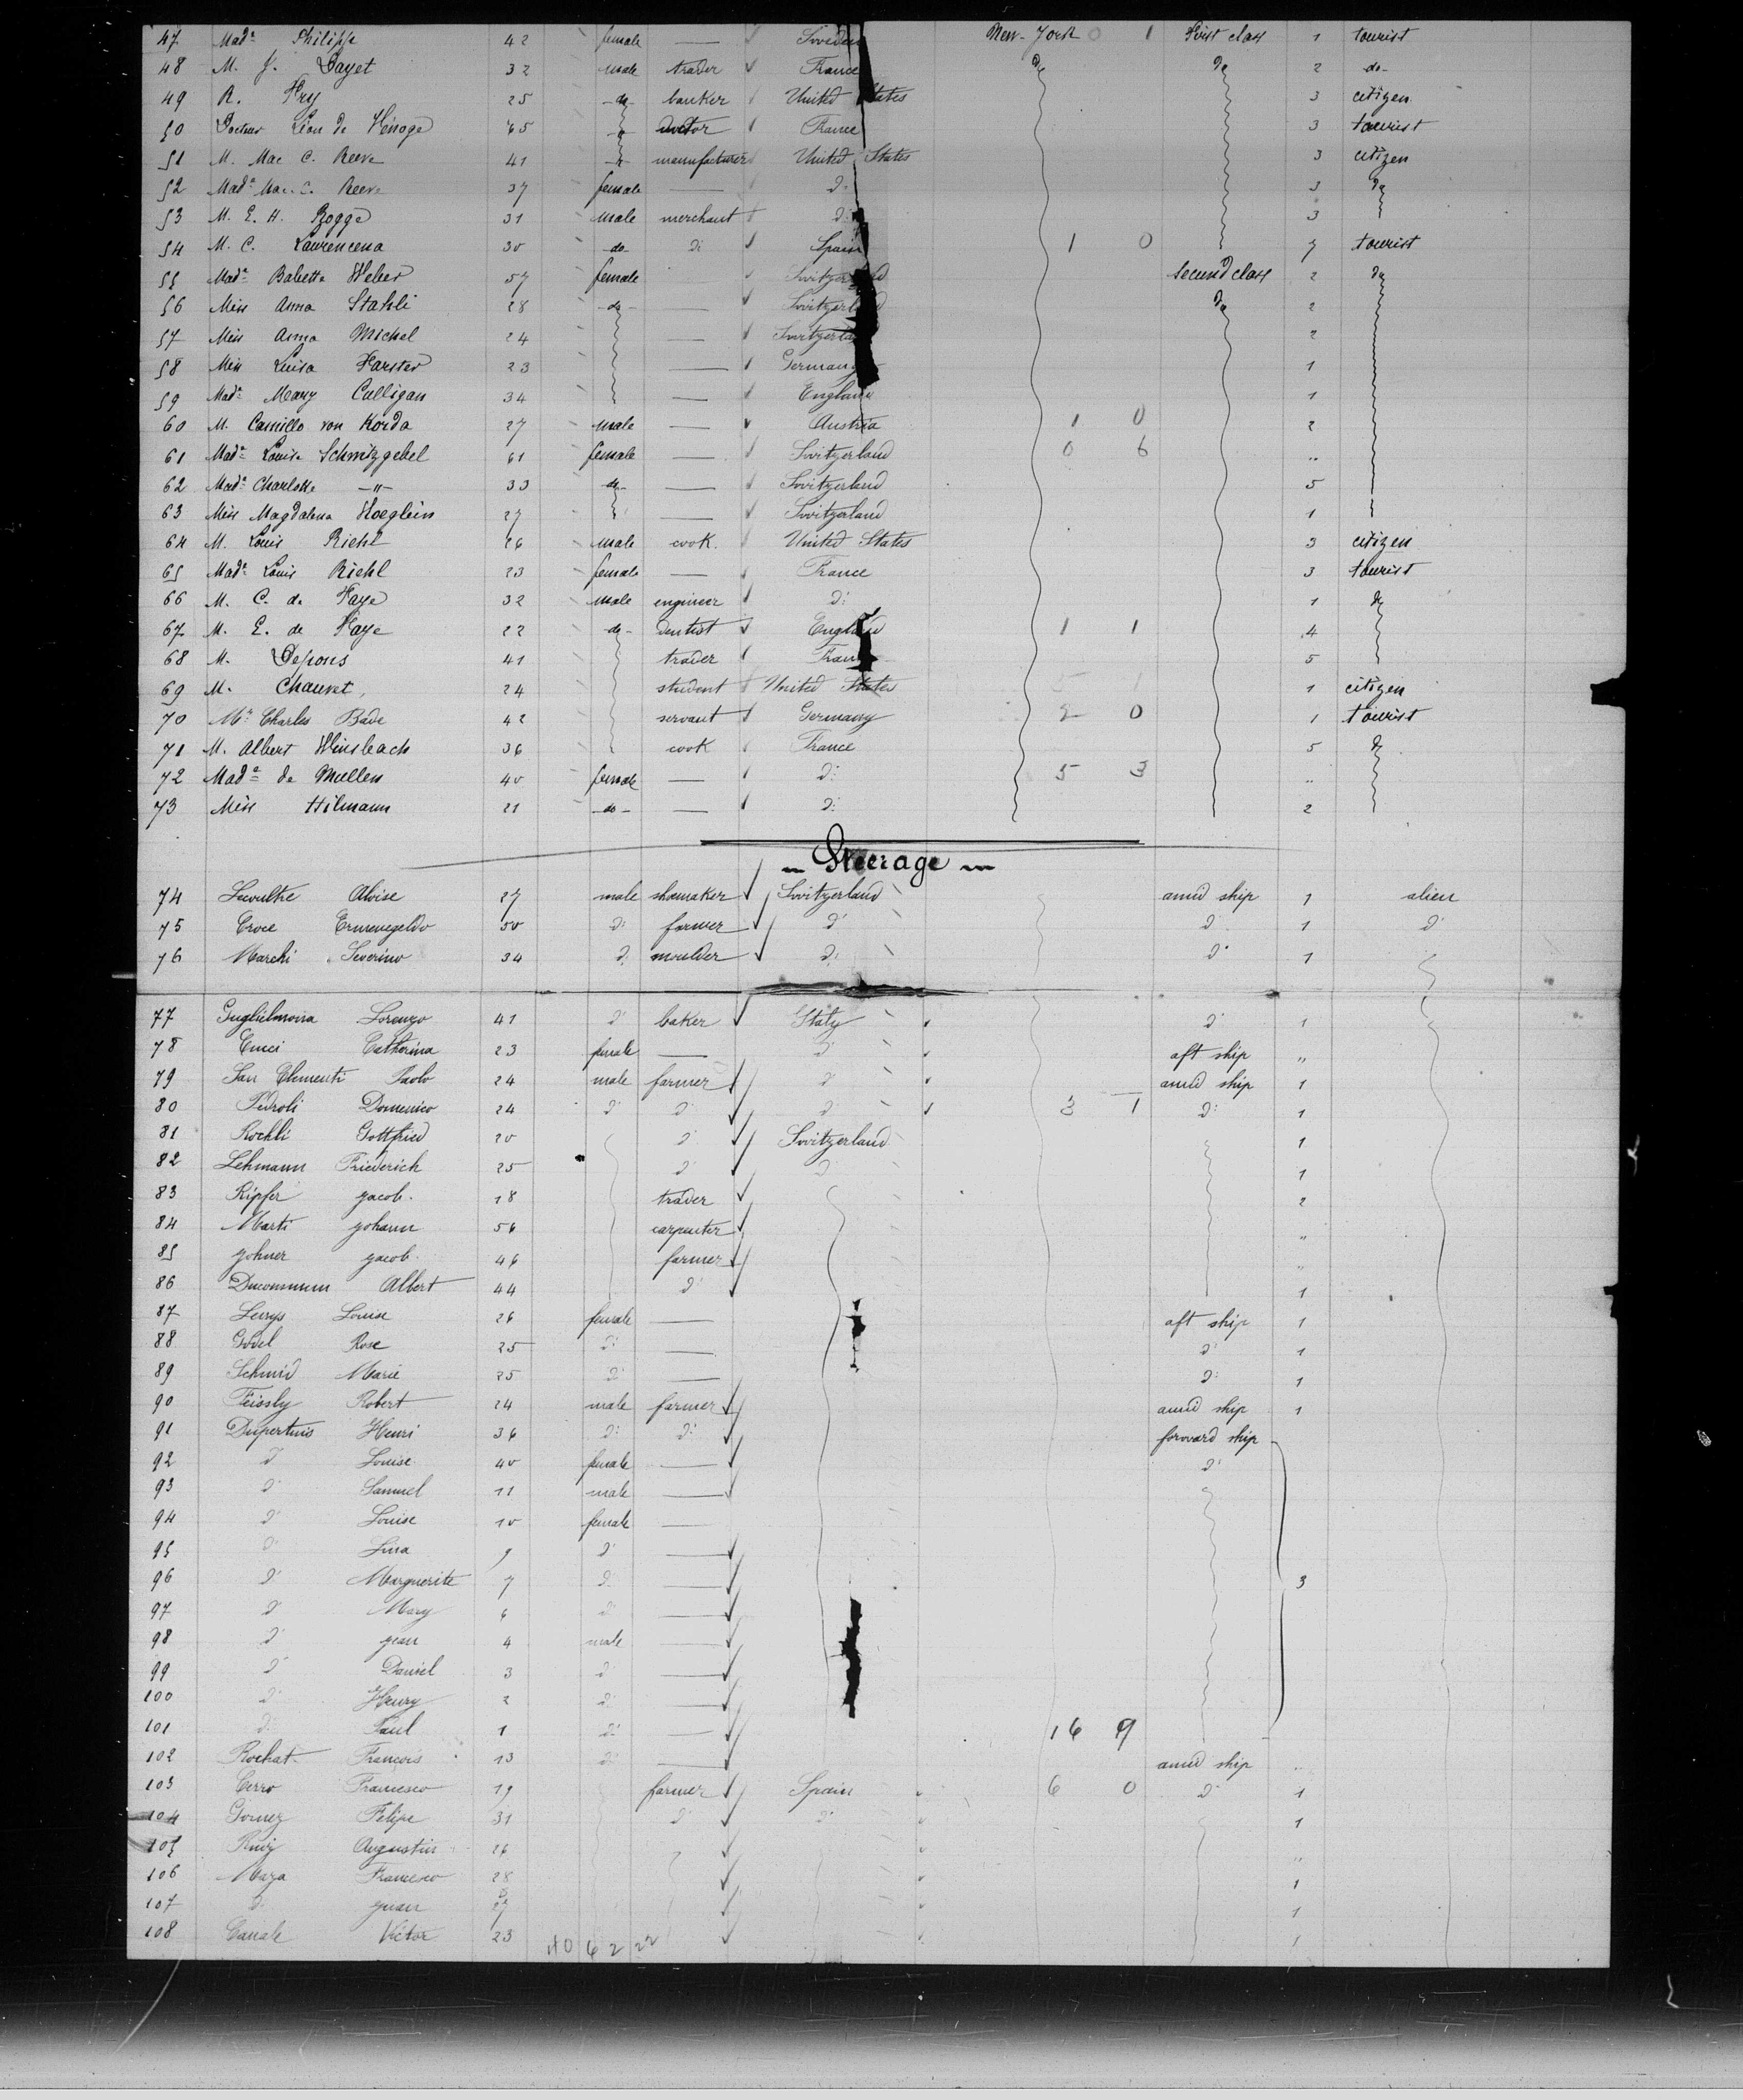 47 Made Philippe 42 female — Sweden New-York 0 1 First class 1 tourist
48 M. J. Dayet 32 male trader France do do 2 do-
49 R. Fry 25 -do- banker United States 3 citizen
50 Docteur Léon de 65 doctor France 3 tourist
51 M. Mac C. Reeve 41 manufacturer United States 3 citizen
52 Made Mac. C. Reeve 37 female — do 3 do
53 M. E. H. Bogge 31 male merchant do 3
54 M. C. Laurencena 30 -do- do Spain 1 0 7 tourist
55 Made Babette Weber 57 female Switzerland second class 2 do
56 Miss Anna Stahli 28 -do- — Switzerland do 2
57 Miss Anna Michel 24 — Switzerland 2
58 Miss Luisa Harster 23 — Germany 1
59 Made Mary Culligan 34 — England 1
60 M. Camillo von Korda 27 male — Austria 1 0 2
61 Made Louise Schmitzgebel 61 female — Switzerland 0 6 "
62 Made Charlotte -"- 33 -do- — Switzerland 5
63 Miss Magdalena Hoeglein 27 — Switzerland 1
64 M. Louis Riehl 26 male cook. United States 3 citizen
65 Made Louis Riehl 23 female — France 3 tourist
66 M. C. de Faye 32 male engineer d: 1 do
67 M. E. de Faye 22 -do- dentist England 1 1 4
68 M. Depons 41 trader France 5
69 M. Chauvet, 24 student United States 1 citizen
70 Mr Charles Bade 42 servant Germany 2 0 1 tourist
71 M. Albert Weisbach 36 cook France 5 do
72 Made de Mullen 40 female — d: 5 3 "
73 Miss Hilmann 21 -do- — d: 2
Steerage
74 Lecoultre Aloise 27 male shomaker Switzerland amid ship 1 alien
75 Croce Ermenegeldo 50 d: farmer d: d: 1 d:
76 Marchi Severino 34 d: moulder d: d: 1
77 Guglielmoina Lorenzo 41 d: baker Italy d: 1
78 Cucci Catherina 23 female — d: aft ship "
79 San Clementi Paolo 24 male farmer d: amid ship 1
80 Pedroli Domenico 24 d: d: d: 3 1 d: 1
81 Kochli Gottfried 20 d: Switzerland 1
82 Lehmann Friederich 25 d: d: 1
83 Kipfer Jacob. 18 trader 2
84 Marti Johann 56 carpenter "
85 Johner Jacob. 46 farmer "
86 Ducommun Albert 44 d: 1
87 Louise 26 female — aft ship 1
88 Godel Rose 25 d: — d: 1
89 Schmid Marie 25 d: — d: 1
90 Feissly Robert 24 male farmer amid ship 1
91 Dupertuis Henri 36 d: d: forward ship
92 d: Louise 40 female — d:
93 d: Samuel 11 male —
94 d: Louise 10 female —
95 d: Lina 9 d: —
96 d: Marguerite 7 d: — 3
97 d: Mary 6 d: —
98 d: Jean 4 male —
99 d: Daniel 3 d: —
100 d: Henry 2 d: —
101 d: Paul 1 d: — 16 9
102 Rochat Francois 13 d: — amid ship "
103 Cerro Francesco 19 farmer Spain 6 0 d: 1
104 Gomez Felipe 31 d: d: 1
105 Ruiz Augustin 26 "
106 Maza Francesco 28 1
107 d: Juan 27 1
108 Canale Victor 23 1
40 62 22